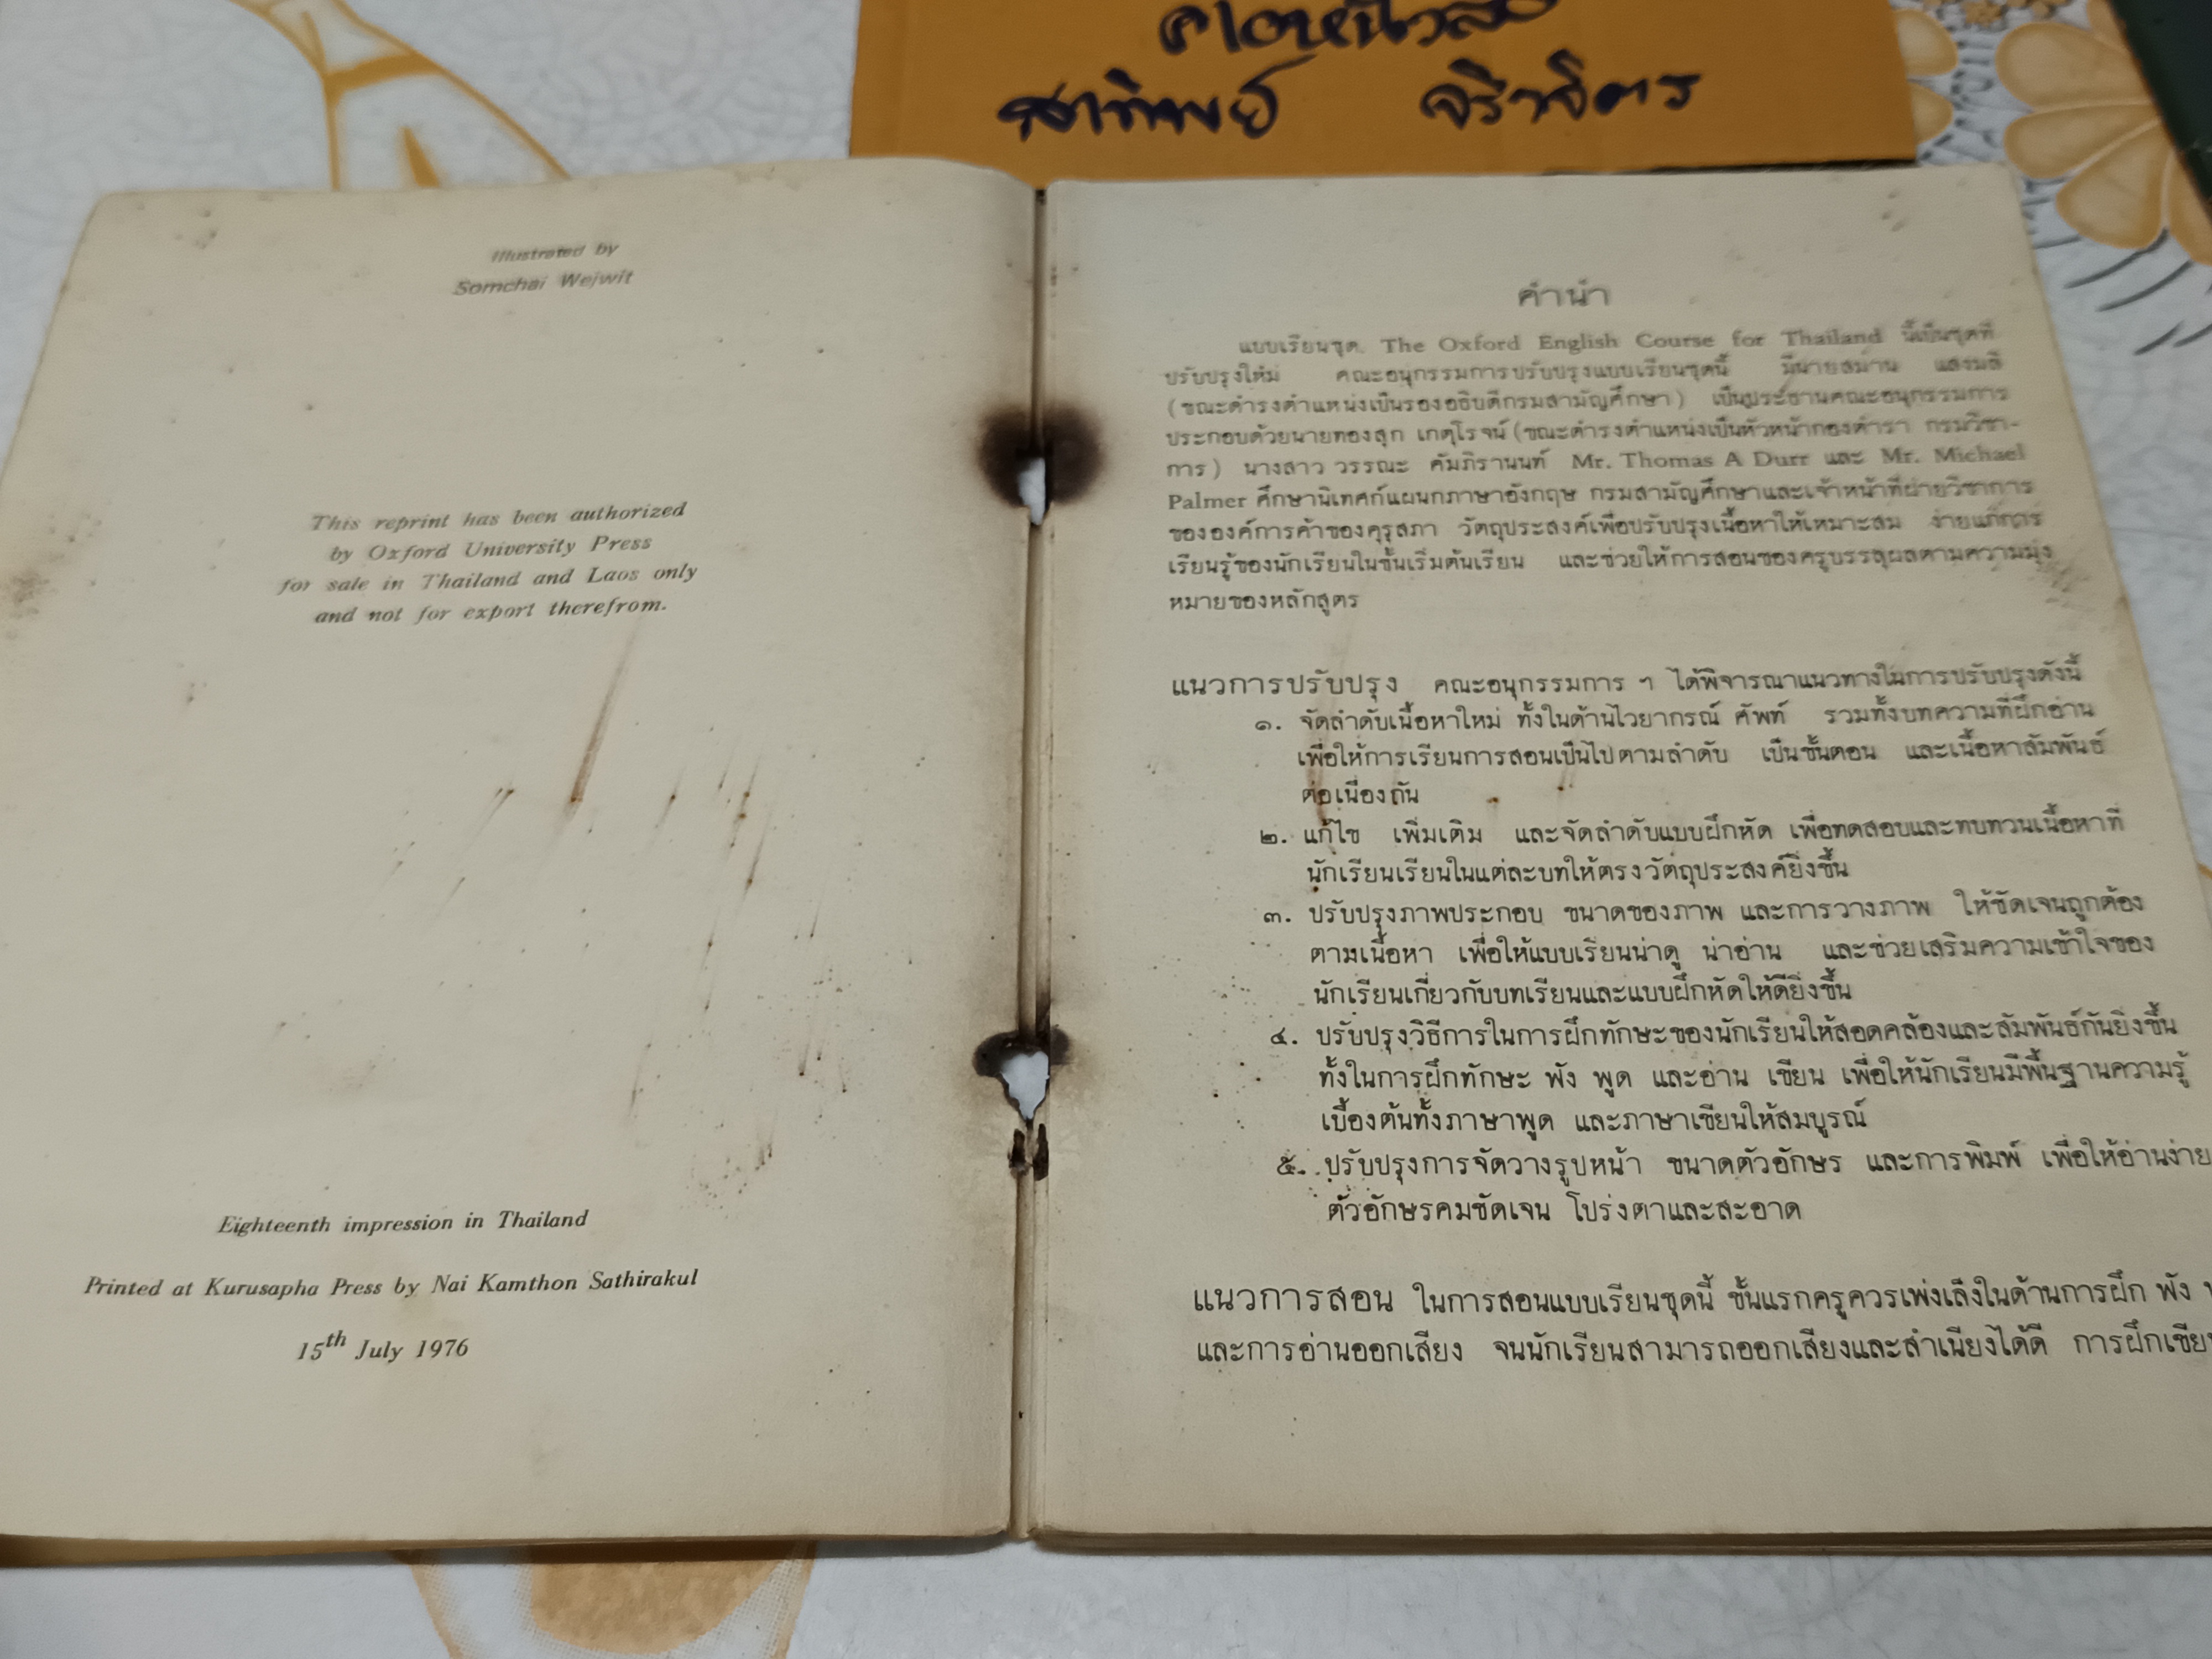 สาทิพย์ จริาจิตร
Illustrated by
Somchai Wejwit
This reprint has been authorized
by Oxford University Press
for sale in Thailand and Laos only
and not for export therefrom.
Eighteenth impression in Thailand
Printed at Kurusapha Press by Nai Kamthon Sathirakul
15th July 1976
คำนำ
แบบเรียนชุด The Oxford English Course for Thailand นี้เป็นชุดที่
ปรับปรุงใหม่ คณะอนุกรรมการปรับปรุงแบบเรียนชุดนี้ มีนายสมาน แสงมลิ
(ขณะดำรงตำแหน่งเป็นรองอธิบดีกรมสามัญศึกษา) เป็นประธานคณะอนุกรรมการ
ประกอบด้วยนายทองสุก เกตุโรจน์ (ขณะดำรงตำแหน่งเป็นหัวหน้ากองตำรา กรมวิชา-
การ) นางสาว วรรณะ คัมภิรานนท์ Mr. Thomas A Durr และ Mr. Michael
Palmer ศึกษานิเทศก์แผนกภาษาอังกฤษ กรมสามัญศึกษาและเจ้าหน้าที่ฝ่ายวิชาการ
ขององค์การค้าของคุรุสภา วัตถุประสงค์เพื่อปรับปรุงเนื้อหาให้เหมาะสม ง่ายแก่การ
เรียนรู้ของนักเรียนในชั้นเริ่มต้นเรียน และช่วยให้การสอนของครูบรรลุผลตามความมุ่ง
หมายของหลักสูตร
แนวการปรับปรุง คณะอนุกรรมการ ฯ ได้พิจารณาแนวทางในการปรับปรุงดังนี้
๑. จัดลำดับเนื้อหาใหม่ ทั้งในด้านไวยากรณ์ ศัพท์ รวมทั้งบทความที่ฝึกอ่าน
เพื่อให้การเรียนการสอนเป็นไปตามลำดับ เป็นขั้นตอน และเนื้อหาสัมพันธ์
ต่อเนื่องกัน
๒. แก้ไข เพิ่มเติม และจัดลำดับแบบฝึกหัด เพื่อทดสอบและทบทวนเนื้อหาที่
นักเรียนเรียนในแต่ละบทให้ตรงวัตถุประสงค์ยิ่งขึ้น
๓. ปรับปรุงภาพประกอบ ขนาดของภาพ และการวางภาพ ให้ชัดเจนถูกต้อง
ตามเนื้อหา เพื่อให้แบบเรียนน่าดู น่าอ่าน และช่วยเสริมความเข้าใจของ
นักเรียนเกี่ยวกับบทเรียนและแบบฝึกหัดให้ดียิ่งขึ้น
๔. ปรับปรุงวิธีการในการฝึกทักษะของนักเรียนให้สอดคล้องและสัมพันธ์กันยิ่งขึ้น
ทั้งในการฝึกทักษะ ฟัง พูด และอ่าน เขียน เพื่อให้นักเรียนมีพื้นฐานความรู้
เบื้องต้นทั้งภาษาพูด และภาษาเขียนให้สมบูรณ์
๕. ปรับปรุงการจัดวางรูปหน้า ขนาดตัวอักษร และการพิมพ์ เพื่อให้อ่านง่าย
ตัวอักษรคมชัดเจน โปร่งตาและสะอาด
แนวการสอน ในการสอนแบบเรียนชุดนี้ ชั้นแรกครูควรเพ่งเล็งในด้านการฝึก ฟัง
และการอ่านออกเสียง จนนักเรียนสามารถออกเสียงและสำเนียงได้ดี การฝึกเขีย